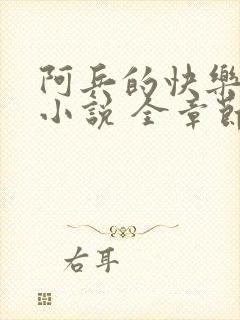 阿兵的快樂
小說 全章節
右耳